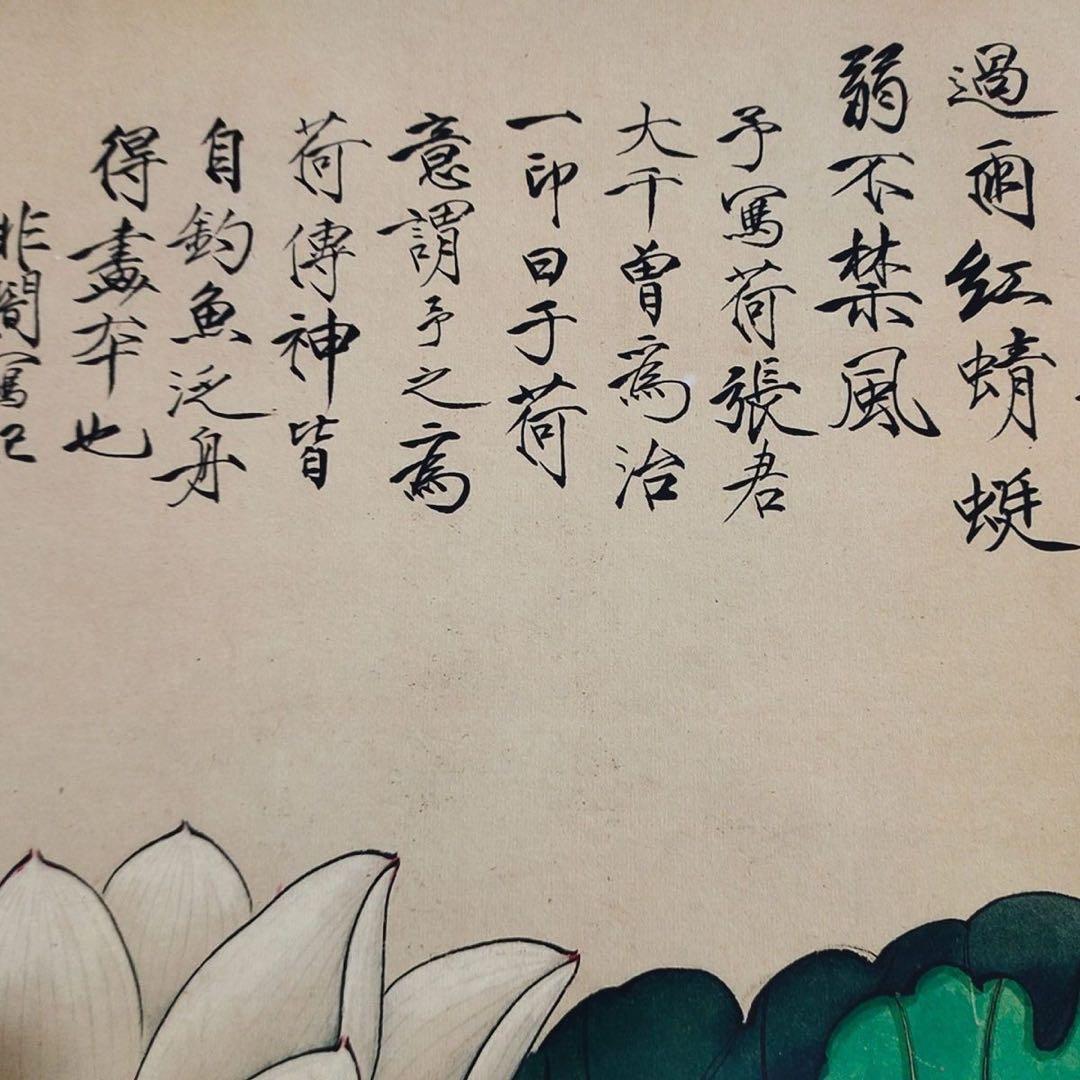 過雨紅蜻蜓
弱不禁風
予寫荷張君
大千曾為治
一印曰于荷
意謂予之寫
荷傳神皆
自釣魚泛舟
得畫本也
非闇寫記